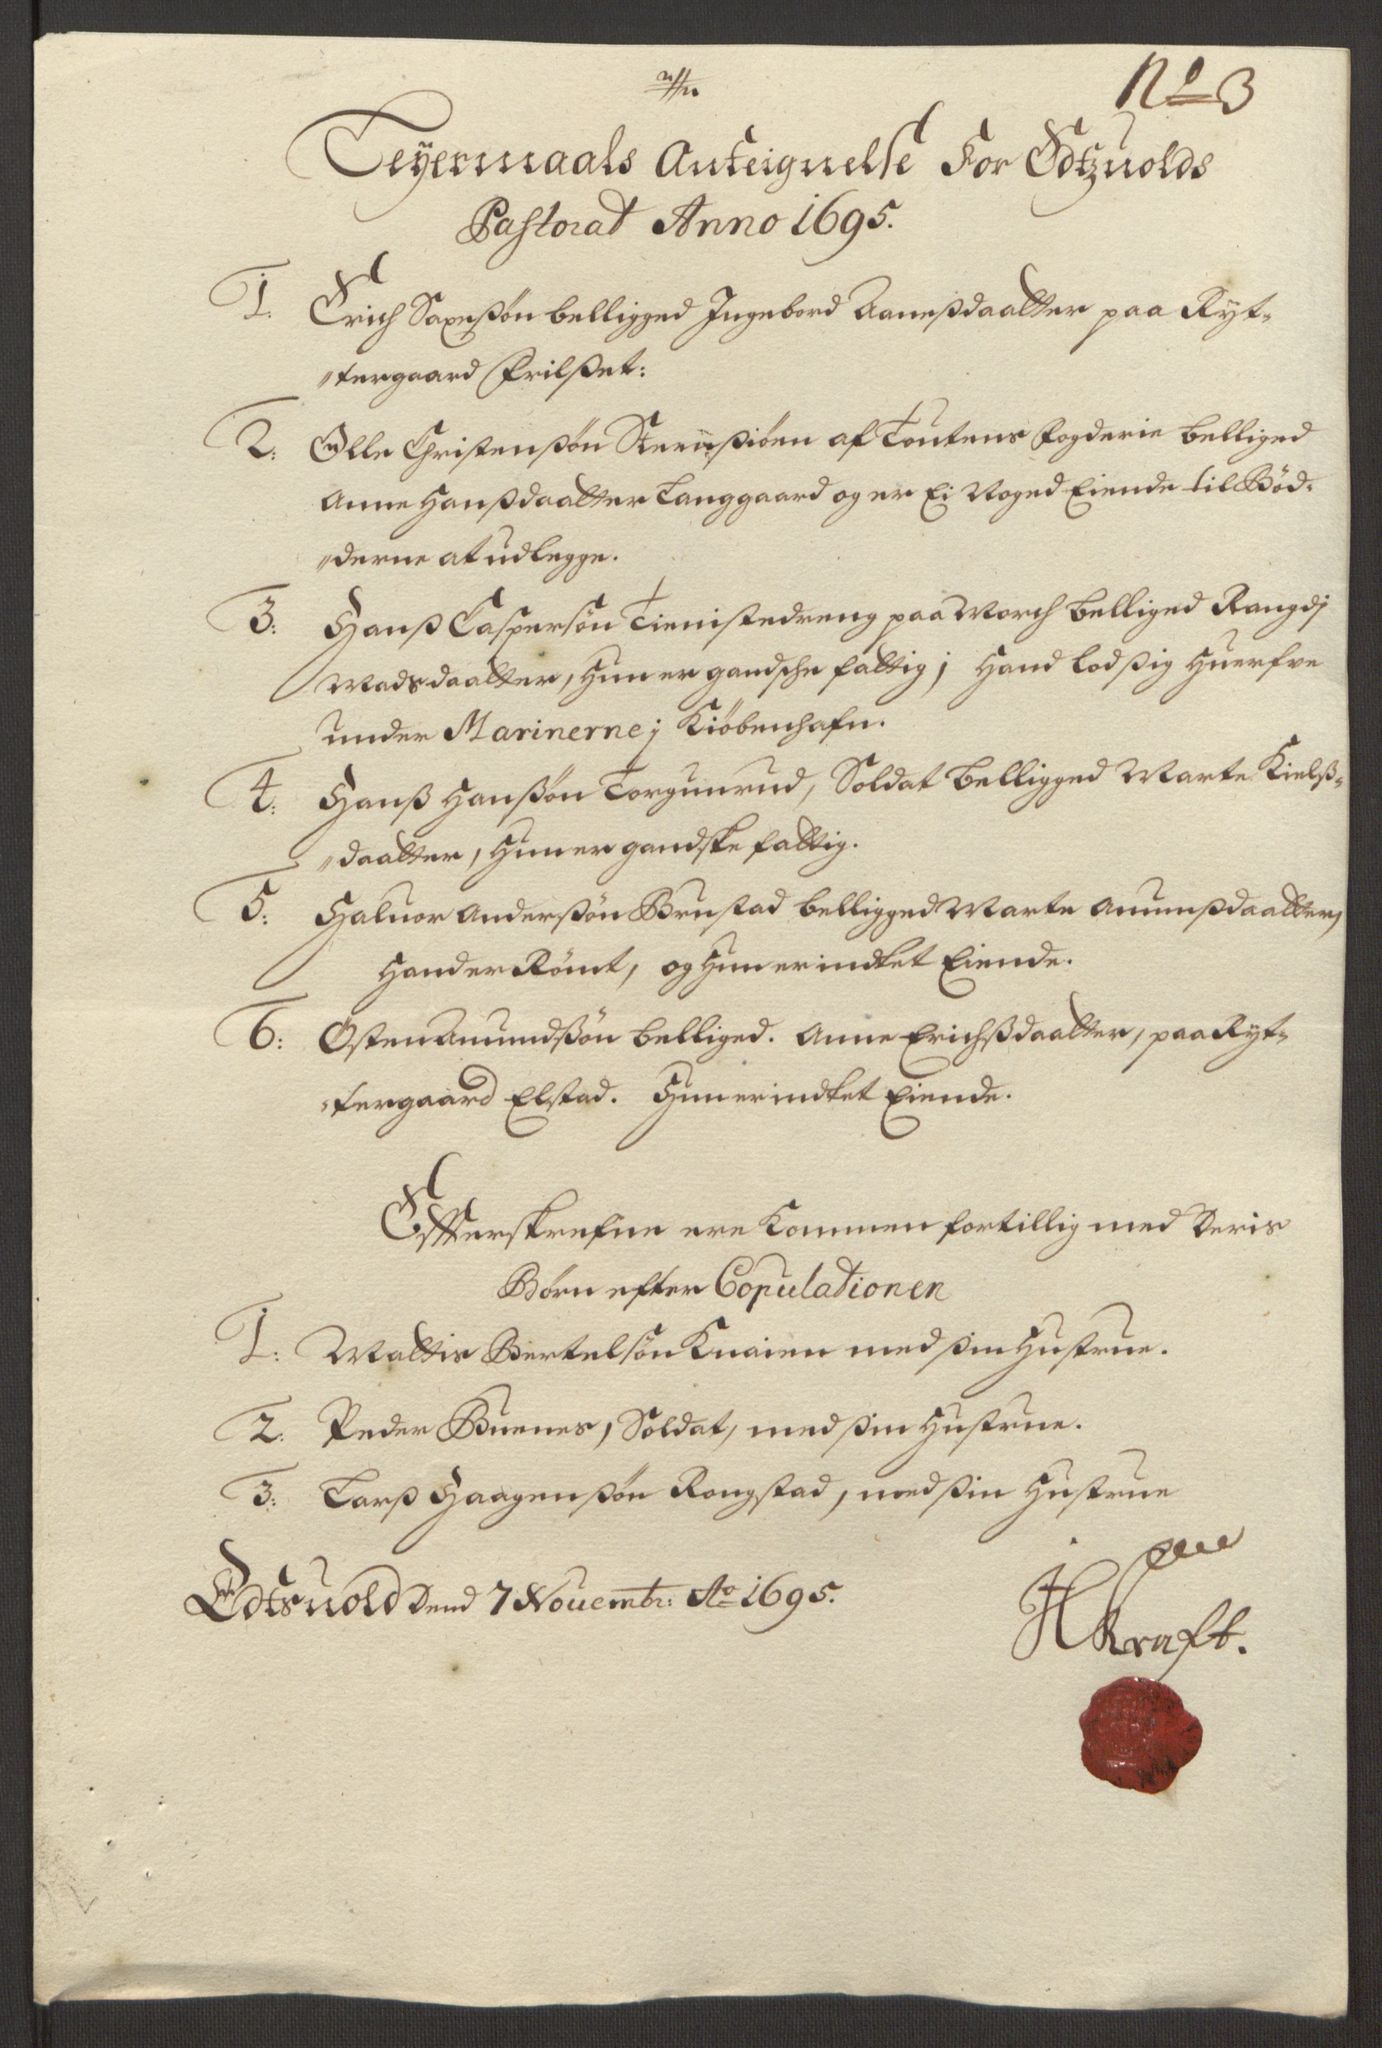 No 3
Leyermaals Anteignelse For Edtzuolds
Pastorat Anno 1695.
1. Erich Saxeßøn belligged Ingebord Aaneßdaatter paa Ryt-
tergaard Frilßet:
2. Olle Christenßøn Skreußiöen af Toutens fogderie belliged
Anne Hanßdaatter Langgaard og er Ei Noged Eiende til Böd-
derne at udlegge.
3. Hanß Caspersøn Tienistedreng paa Morch belliged Rangdj
Madsdaatter, Hun er gandsche fattig; Hand lod ßig Huerfve
under Marinerne j Kiöbenhafn.
4. Hanß Hanßøn Torgunrud, Soldat belligged Marte Kielß-
daatter, Hun er gandske fattig.
5. Haluor Anderßøn Brustad belligged Marte Amunßdaatter,
Hand er Römt, og Hun er indtet Eiende.
6. Osten Amundßøn belliged. Anne Erichßdaatter, paa Ryt-
tergaard Elstad. Hun er indtet Eiende.
Efterskrefne ere Kommen fortillig med Deris
Börn efter Copulationen
1. Mattis Bertelsøn Knaien med ßin Hustrue.
2. Peder Buenes, Soldat, med ßin Hustrue.
3. Larß Haagenßøn Rongstad, med ßin Hustrue
Edtsuold Dend 7 Nouembr: Ao 1695.
H Kraft.